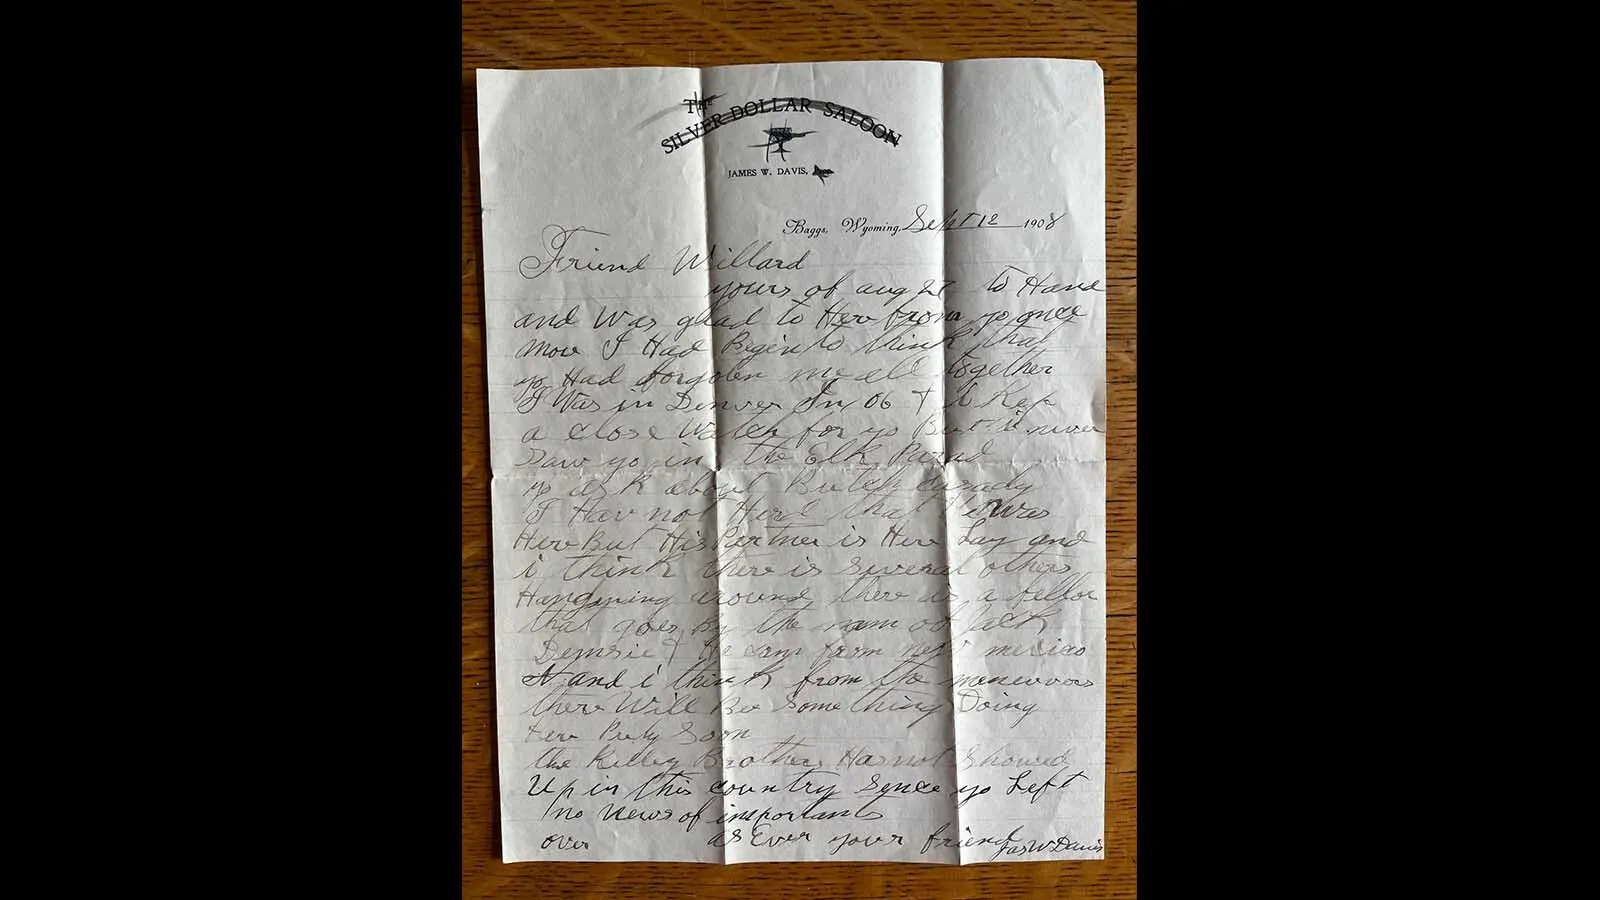 THE
SILVER DOLLAR SALOON
JAMES W. DAVIS,
Baggs, Wyoming, Sept 12 1908
Friend Willard
yours of aug 22 to Hand
and Was glad to Her from yo once
more I Had Begin to think that
yo Had forgoten me all together
I Was in Denver In 06 & I Kep
a close Watch for yo But i never
saw yo in the Elk Parad
yo ask about Butch Casady
I Hav not Herd that he Was
Here But His Partner is Here Lay and
i think there is several others
Hanging around there is a fellor
that goes By the nam of Jack
Demsie & He cam from new mexico
and i think from the manuvors
there Will Be Some thing Doing
Here Prity Soon
the Kelley Brothers Has not Showed
Up in this country sence yo Left
no News of importants
over as Ever your friend Jas W Davis